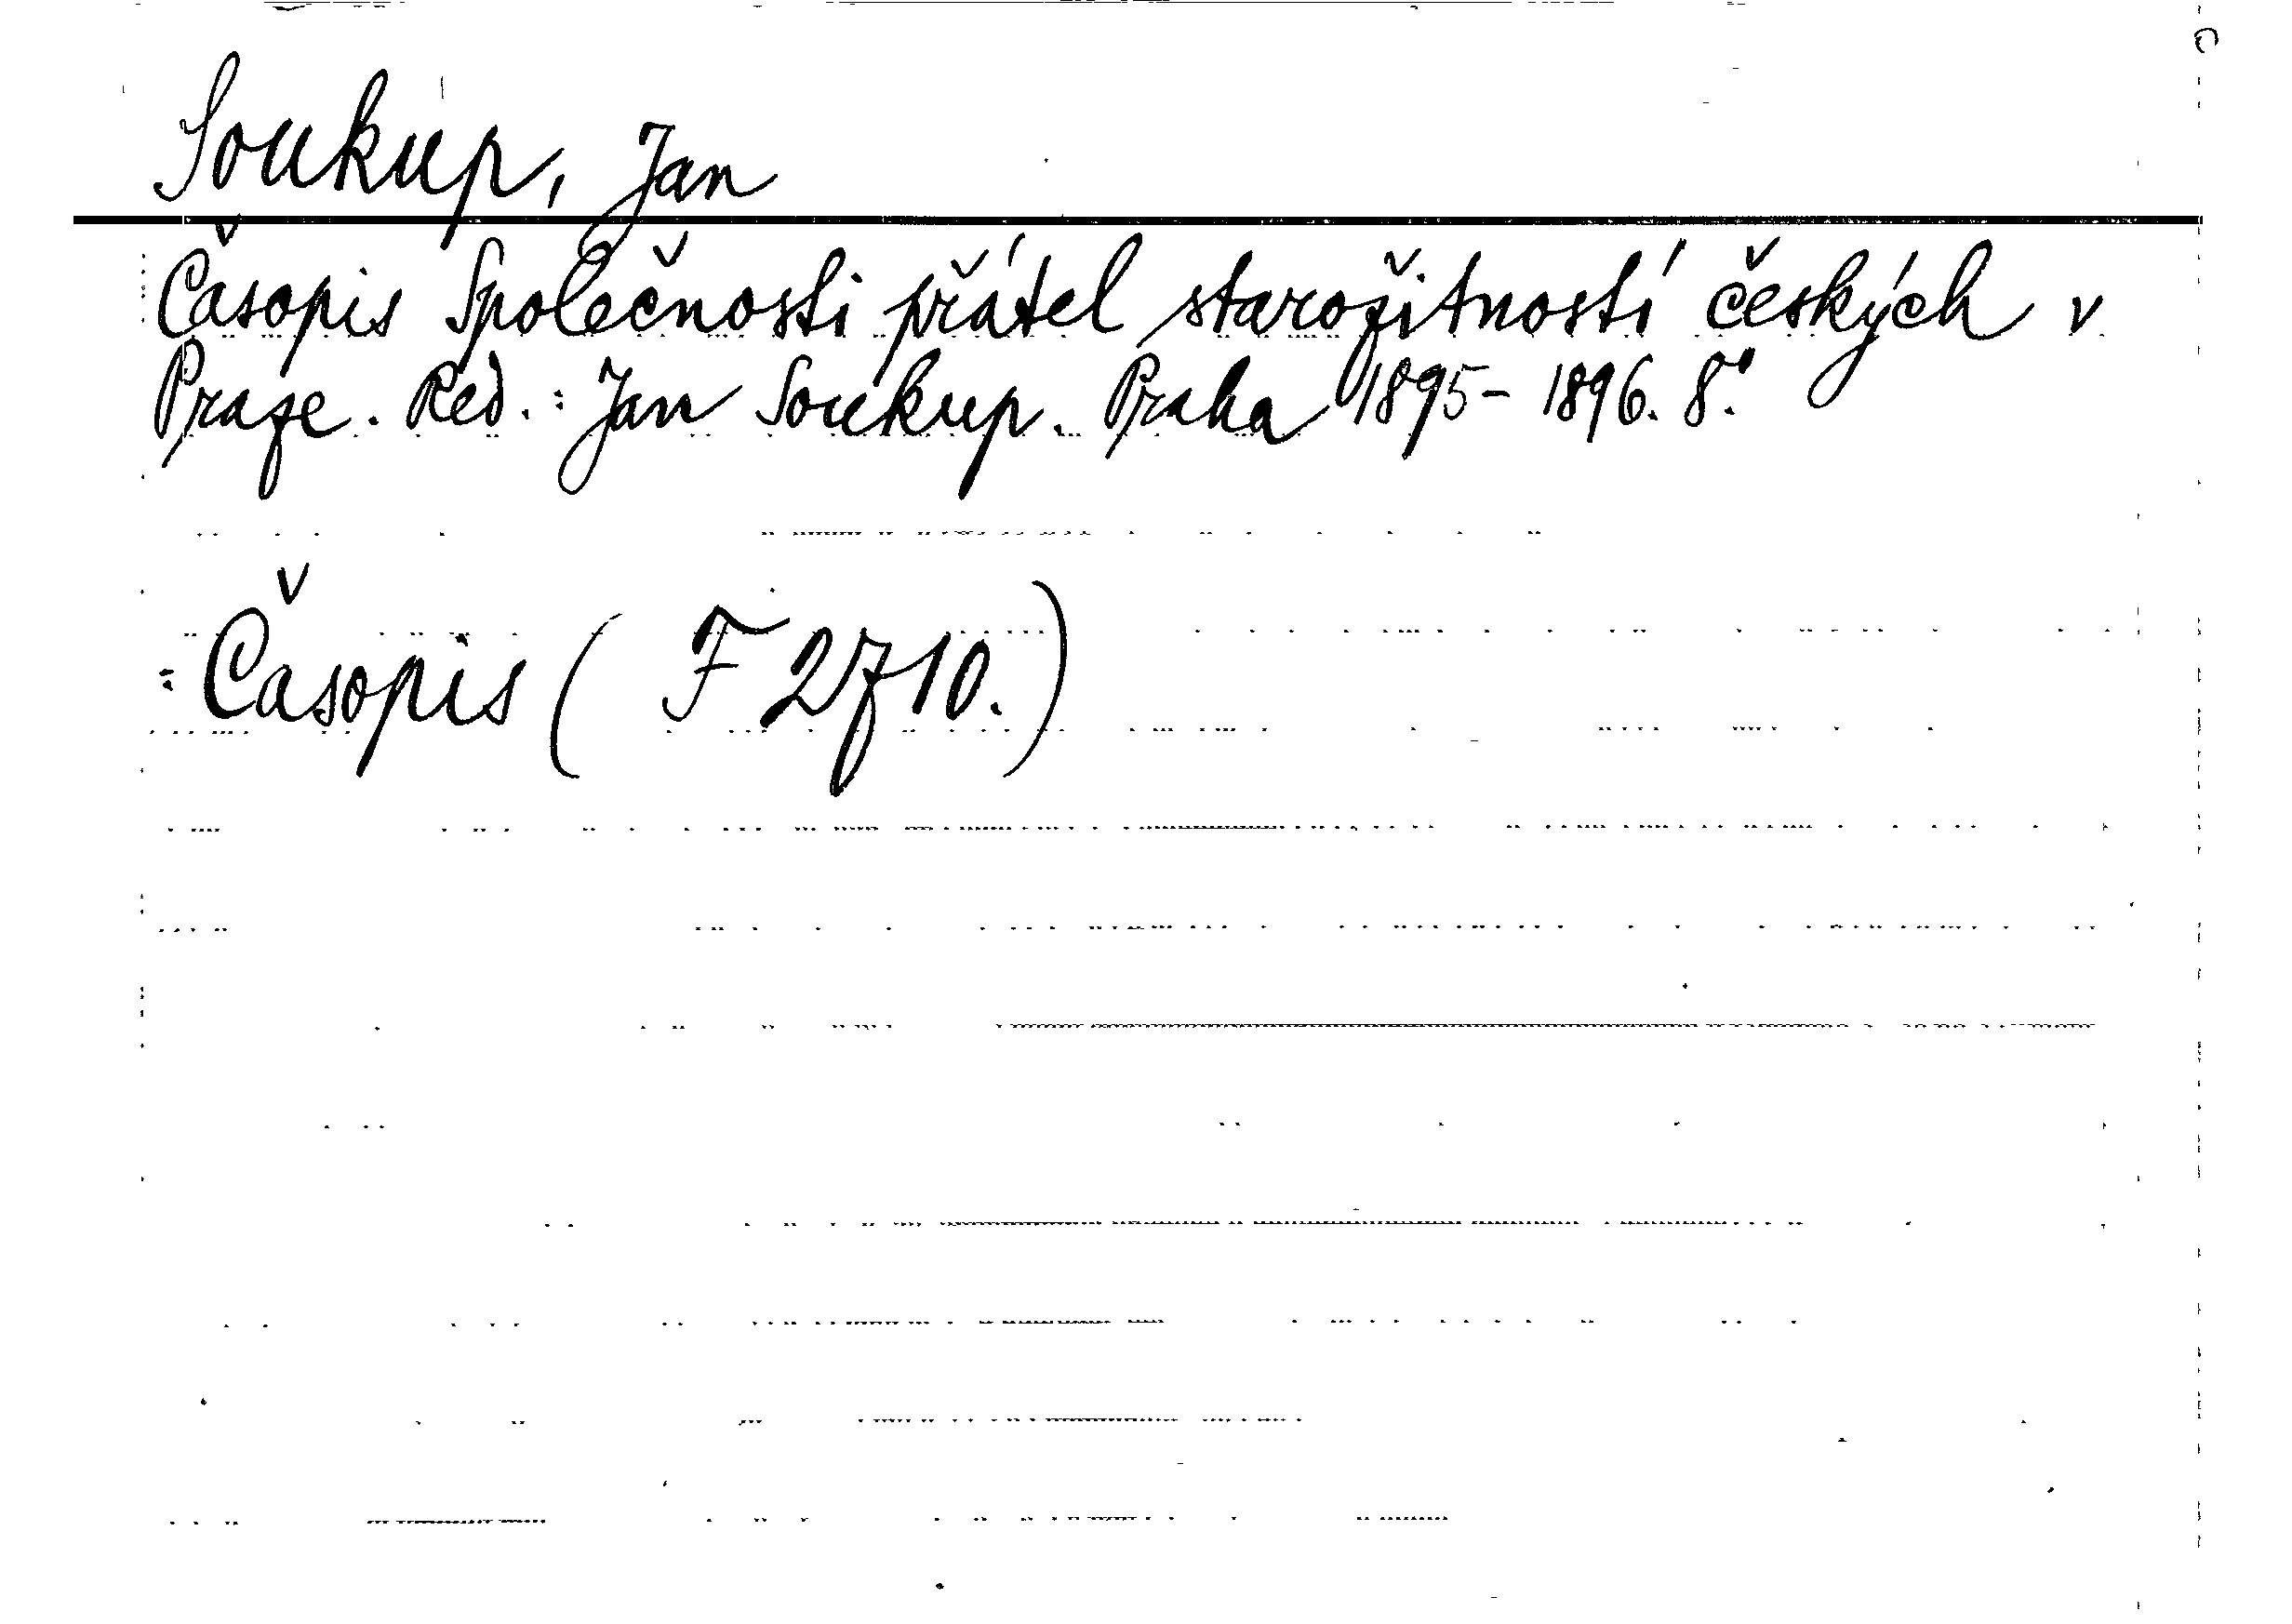 Soukup, Jan
Časopis Společnosti přátel starožitností českých v
Praze. Red.: Jan Soukup. Praha 1895-1896. 8°.
: Časopis ( F 2710.)